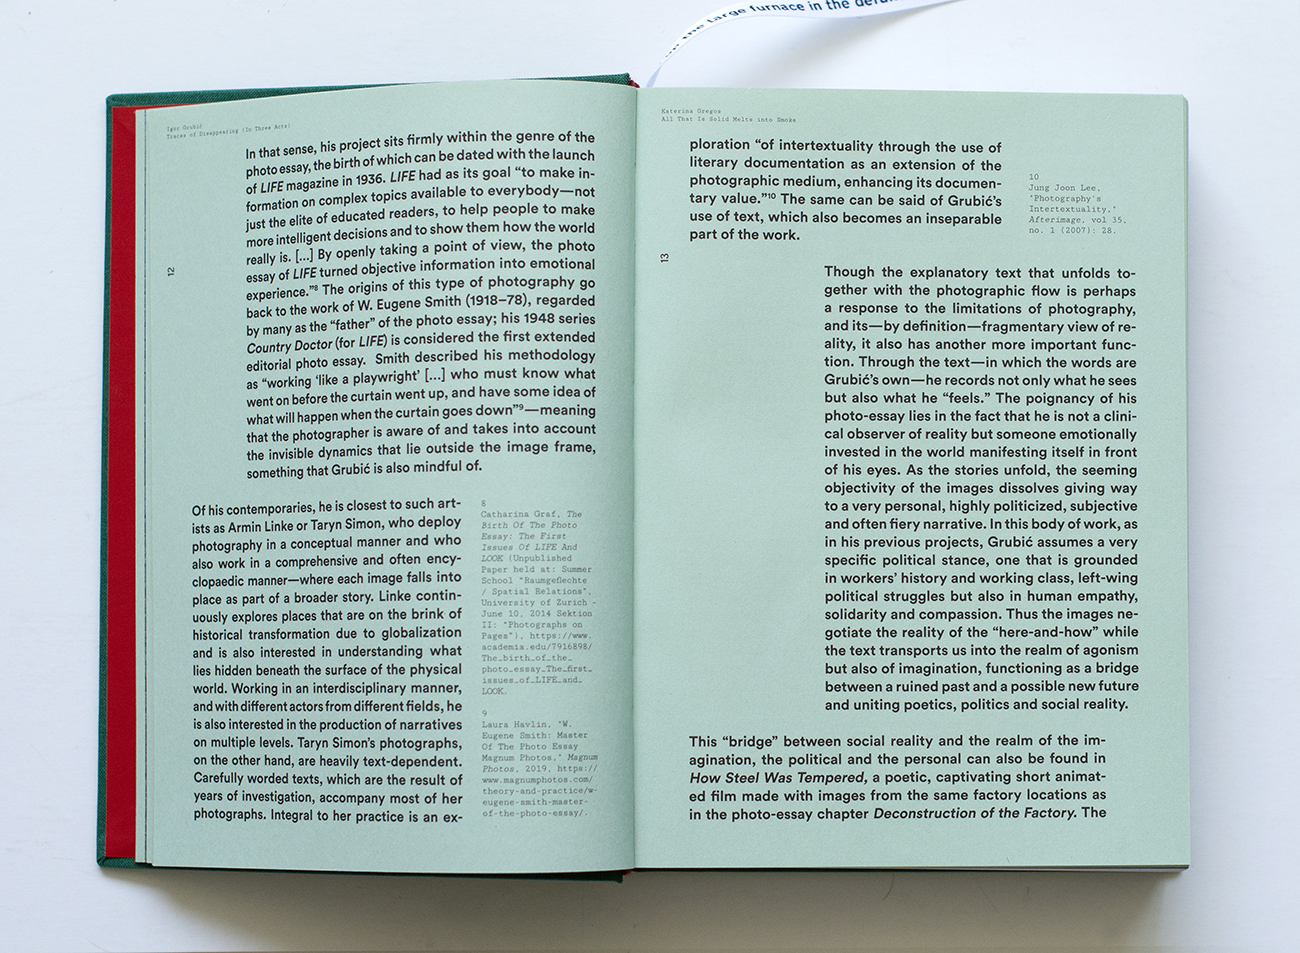 the large furnace in the
Igor Grubić
Traces of Disappearing (In Three Acts)
In that sense, his project sits firmly within the genre of the
photo essay, the birth of which can be dated with the launch
of LIFE magazine in 1936. LIFE had as its goal “to make in-
formation on complex topics available to everybody—not
just the elite of educated readers, to help people to make
more intelligent decisions and to show them how the world
really is. [...] By openly taking a point of view, the photo
essay of LIFE turned objective information into emotional
experience.”⁸ The origins of this type of photography go
back to the work of W. Eugene Smith (1918–78), regarded
by many as the “father” of the photo essay; his 1948 series
Country Doctor (for LIFE) is considered the first extended
editorial photo essay. Smith described his methodology
as “working ‘like a playwright’ [...] who must know what
went on before the curtain went up, and have some idea of
what will happen when the curtain goes down”⁹—meaning
that the photographer is aware of and takes into account
the invisible dynamics that lie outside the image frame,
something that Grubić is also mindful of.
12
Of his contemporaries, he is closest to such art-
ists as Armin Linke or Taryn Simon, who deploy
photography in a conceptual manner and who
also work in a comprehensive and often ency-
clopaedic manner—where each image falls into
place as part of a broader story. Linke contin-
uously explores places that are on the brink of
historical transformation due to globalization
and is also interested in understanding what
lies hidden beneath the surface of the physical
world. Working in an interdisciplinary manner,
and with different actors from different fields, he
is also interested in the production of narratives
on multiple levels. Taryn Simon’s photographs,
on the other hand, are heavily text-dependent.
Carefully worded texts, which are the result of
years of investigation, accompany most of her
photographs. Integral to her practice is an ex-
8
Catharina Graf, The
Birth Of The Photo
Essay: The First
Issues Of LIFE And
LOOK (Unpublished
Paper held at: Summer
School "Raumgeflechte
/ Spatial Relations",
University of Zurich -
June 10, 2014 Sektion
II: "Photographs on
Pages"), https://www.
academia.edu/7916898/
The_birth_of_the_
photo_essay_The_first_
issues_of_LIFE_and_
LOOK.
9
Laura Havlin, "W.
Eugene Smith: Master
Of The Photo Essay
Magnum Photos," Magnum
Photos, 2019, https://
www.magnumphotos.com/
theory-and-practice/w-
eugene-smith-master-
of-the-photo-essay/.
Katerina Gregos
All That Is Solid Melts into Smoke
ploration “of intertextuality through the use of
literary documentation as an extension of the
photographic medium, enhancing its documen-
tary value.”¹⁰ The same can be said of Grubić’s
use of text, which also becomes an inseparable
part of the work.
10
Jung Joon Lee,
"Photography's
Intertextuality,"
Afterimage, vol 35,
no. 1 (2007): 28.
13
Though the explanatory text that unfolds to-
gether with the photographic flow is perhaps
a response to the limitations of photography,
and its—by definition—fragmentary view of re-
ality, it also has another more important func-
tion. Through the text—in which the words are
Grubić’s own—he records not only what he sees
but also what he “feels.” The poignancy of his
photo-essay lies in the fact that he is not a clini-
cal observer of reality but someone emotionally
invested in the world manifesting itself in front
of his eyes. As the stories unfold, the seeming
objectivity of the images dissolves giving way
to a very personal, highly politicized, subjective
and often fiery narrative. In this body of work, as
in his previous projects, Grubić assumes a very
specific political stance, one that is grounded
in workers’ history and working class, left-wing
political struggles but also in human empathy,
solidarity and compassion. Thus the images ne-
gotiate the reality of the “here-and-how” while
the text transports us into the realm of agonism
but also of imagination, functioning as a bridge
between a ruined past and a possible new future
and uniting poetics, politics and social reality.
This “bridge” between social reality and the realm of the im-
agination, the political and the personal can also be found in
How Steel Was Tempered, a poetic, captivating short animat-
ed film made with images from the same factory locations as
in the photo-essay chapter Deconstruction of the Factory. The